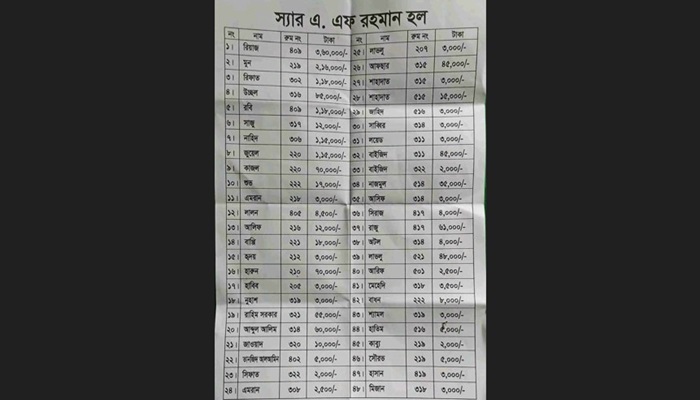 স্যার এ. এফ রহমান হল
নং নাম রুম নং টাকা নং নাম রুম নং টাকা
১। রিয়াজ ৪০৯ ৩,৬০,০০০/- ২৫। লাভলু ২০৭ ৩,০০০/-
২। মুন ২১৯ ২,১৬,০০০/- ২৬। আফছার ৩১৫ ৪৫,০০০/-
৩। রিফাত ৩০২ ১,১৮,০০০/- ২৭। শাহাদাত ৩১৫ ৩,০০০/-
৪। উচ্ছল ৩১৬ ৮৫,০০০/- ২৮। শাহাদাত ৫১৫ ১৫,০০০/-
৫। রবি ৪০৯ ১,১৮,০০০/- ২৯। জাহিদ ৫১৬ ৩,০০০/-
৬। সাজু ৩১৭ ১২,০০০/- ৩০। সাব্বির ৩১৪ ৩,০০০/-
৭। নাহিদ ৩০৬ ১,১৫,০০০/- ৩১। লয়েড ৩১১ ৩,০০০/-
৮। জুয়েল ২২০ ১,১৫,০০০/- ৩২। বাইজিদ ৩১১ ৪৫,০০০/-
৯। কাজল ২২০ ৭০,০০০/- ৩৩। বাইজিদ ৩২২ ২,০০০/-
১০। শুভ ২২২ ১৭,০০০/- ৩৪। নাজমুল ৫১৪ ৩৫,০০০/-
১১। এমরান ২১৮ ৩,০০০/- ৩৫। আসিফ ৩১৪ ৩,০০০/-
১২। লালন ৪০৫ ৪,৫০০/- ৩৬। সিরাজ ৪১৭ ৪,০০০/-
১৩। আলিফ ২১৬ ১২,০০০/- ৩৭। রাজু ৪১৭ ৬১,০০০/-
১৪। বাপ্পি ২২১ ১৮,০০০/- ৩৮। অটল ৩১৪ ৪,০০০/-
১৫। হৃদয় ২১২ ৩,০০০/- ৩৯। লাভলু ৫২১ ৪৮,০০০/-
১৬। হারুন ২১০ ৭০,০০০/- ৪০। আরিফ ৫০১ ২,৫০০/-
১৭। হাবিব ২০৫ ৩,০০০/- ৪১। মেহেদি ৩১৮ ৩,৫০০/-
১৮। নুহাশ ৩১৯ ৩,০০০/- ৪২। বাধন ২২২ ৮,০০০/-
১৯। রাহিম সরকার ৩২১ ৫৫,০০০/- ৪৩। শ্যামল ৩১৯ ৩,০০০/-
২০। আব্দুল আলিম ৩১৪ ৬০,০০০/- ৪৪। হাতিম ৫১৬
২১। জাওয়াদ ৩২১ ১০,০০০/- ৪৫। কাব্য ২১৯ ২,০০০/-
২২। তানজিদ আলআমিন ৪০২ ৫,০০০/- ৪৬। সৌরভ ২১৯ ৫,০০০/-
২৩। সিফাত ৩২২ ২,০০০/- ৪৭। হাসান ৪১৯ ৩,০০০/-
২৪। এমরান ৩০৮ ২,৫০০/- ৪৮। মিজান ৩১৮ ৩,০০০/-